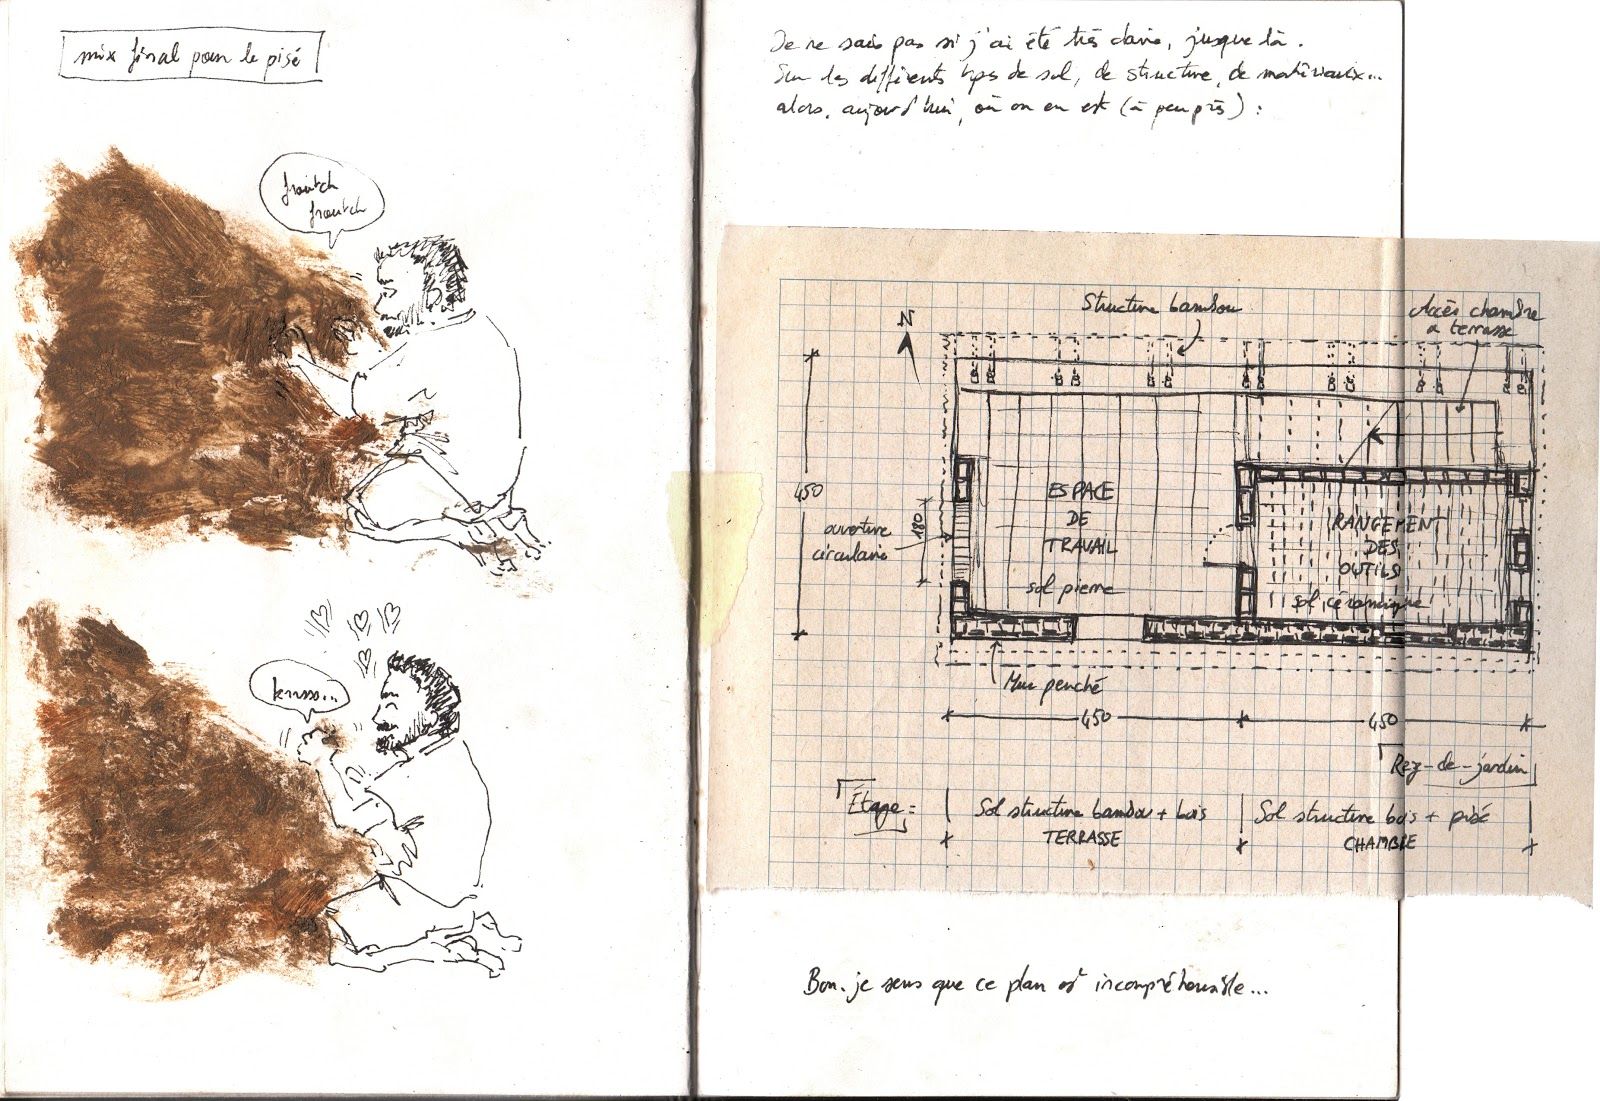 mix final pour le pisé
froutch
froutch
Je ne sais pas si j'ai été très claire, jusque là.
Sur les différents types de sol, de structure, de matériaux...
alors, aujourd'hui, où on en est (à peu près) :
N
Structure bambou
Accès chambre
a terrasse
450
ouverture
circulaire
180
ESPACE
DE
TRAVAIL
sol pierre
RANGEMENT
DES
OUTILS
sol céramique
Mur penché
450
450
Rez-de-jardin
Étage :
Sol structure bambou + bois
TERRASSE
Sol structure bois + pisé
CHAMBRE
Bon. je sens que ce plan est incompréhensible...